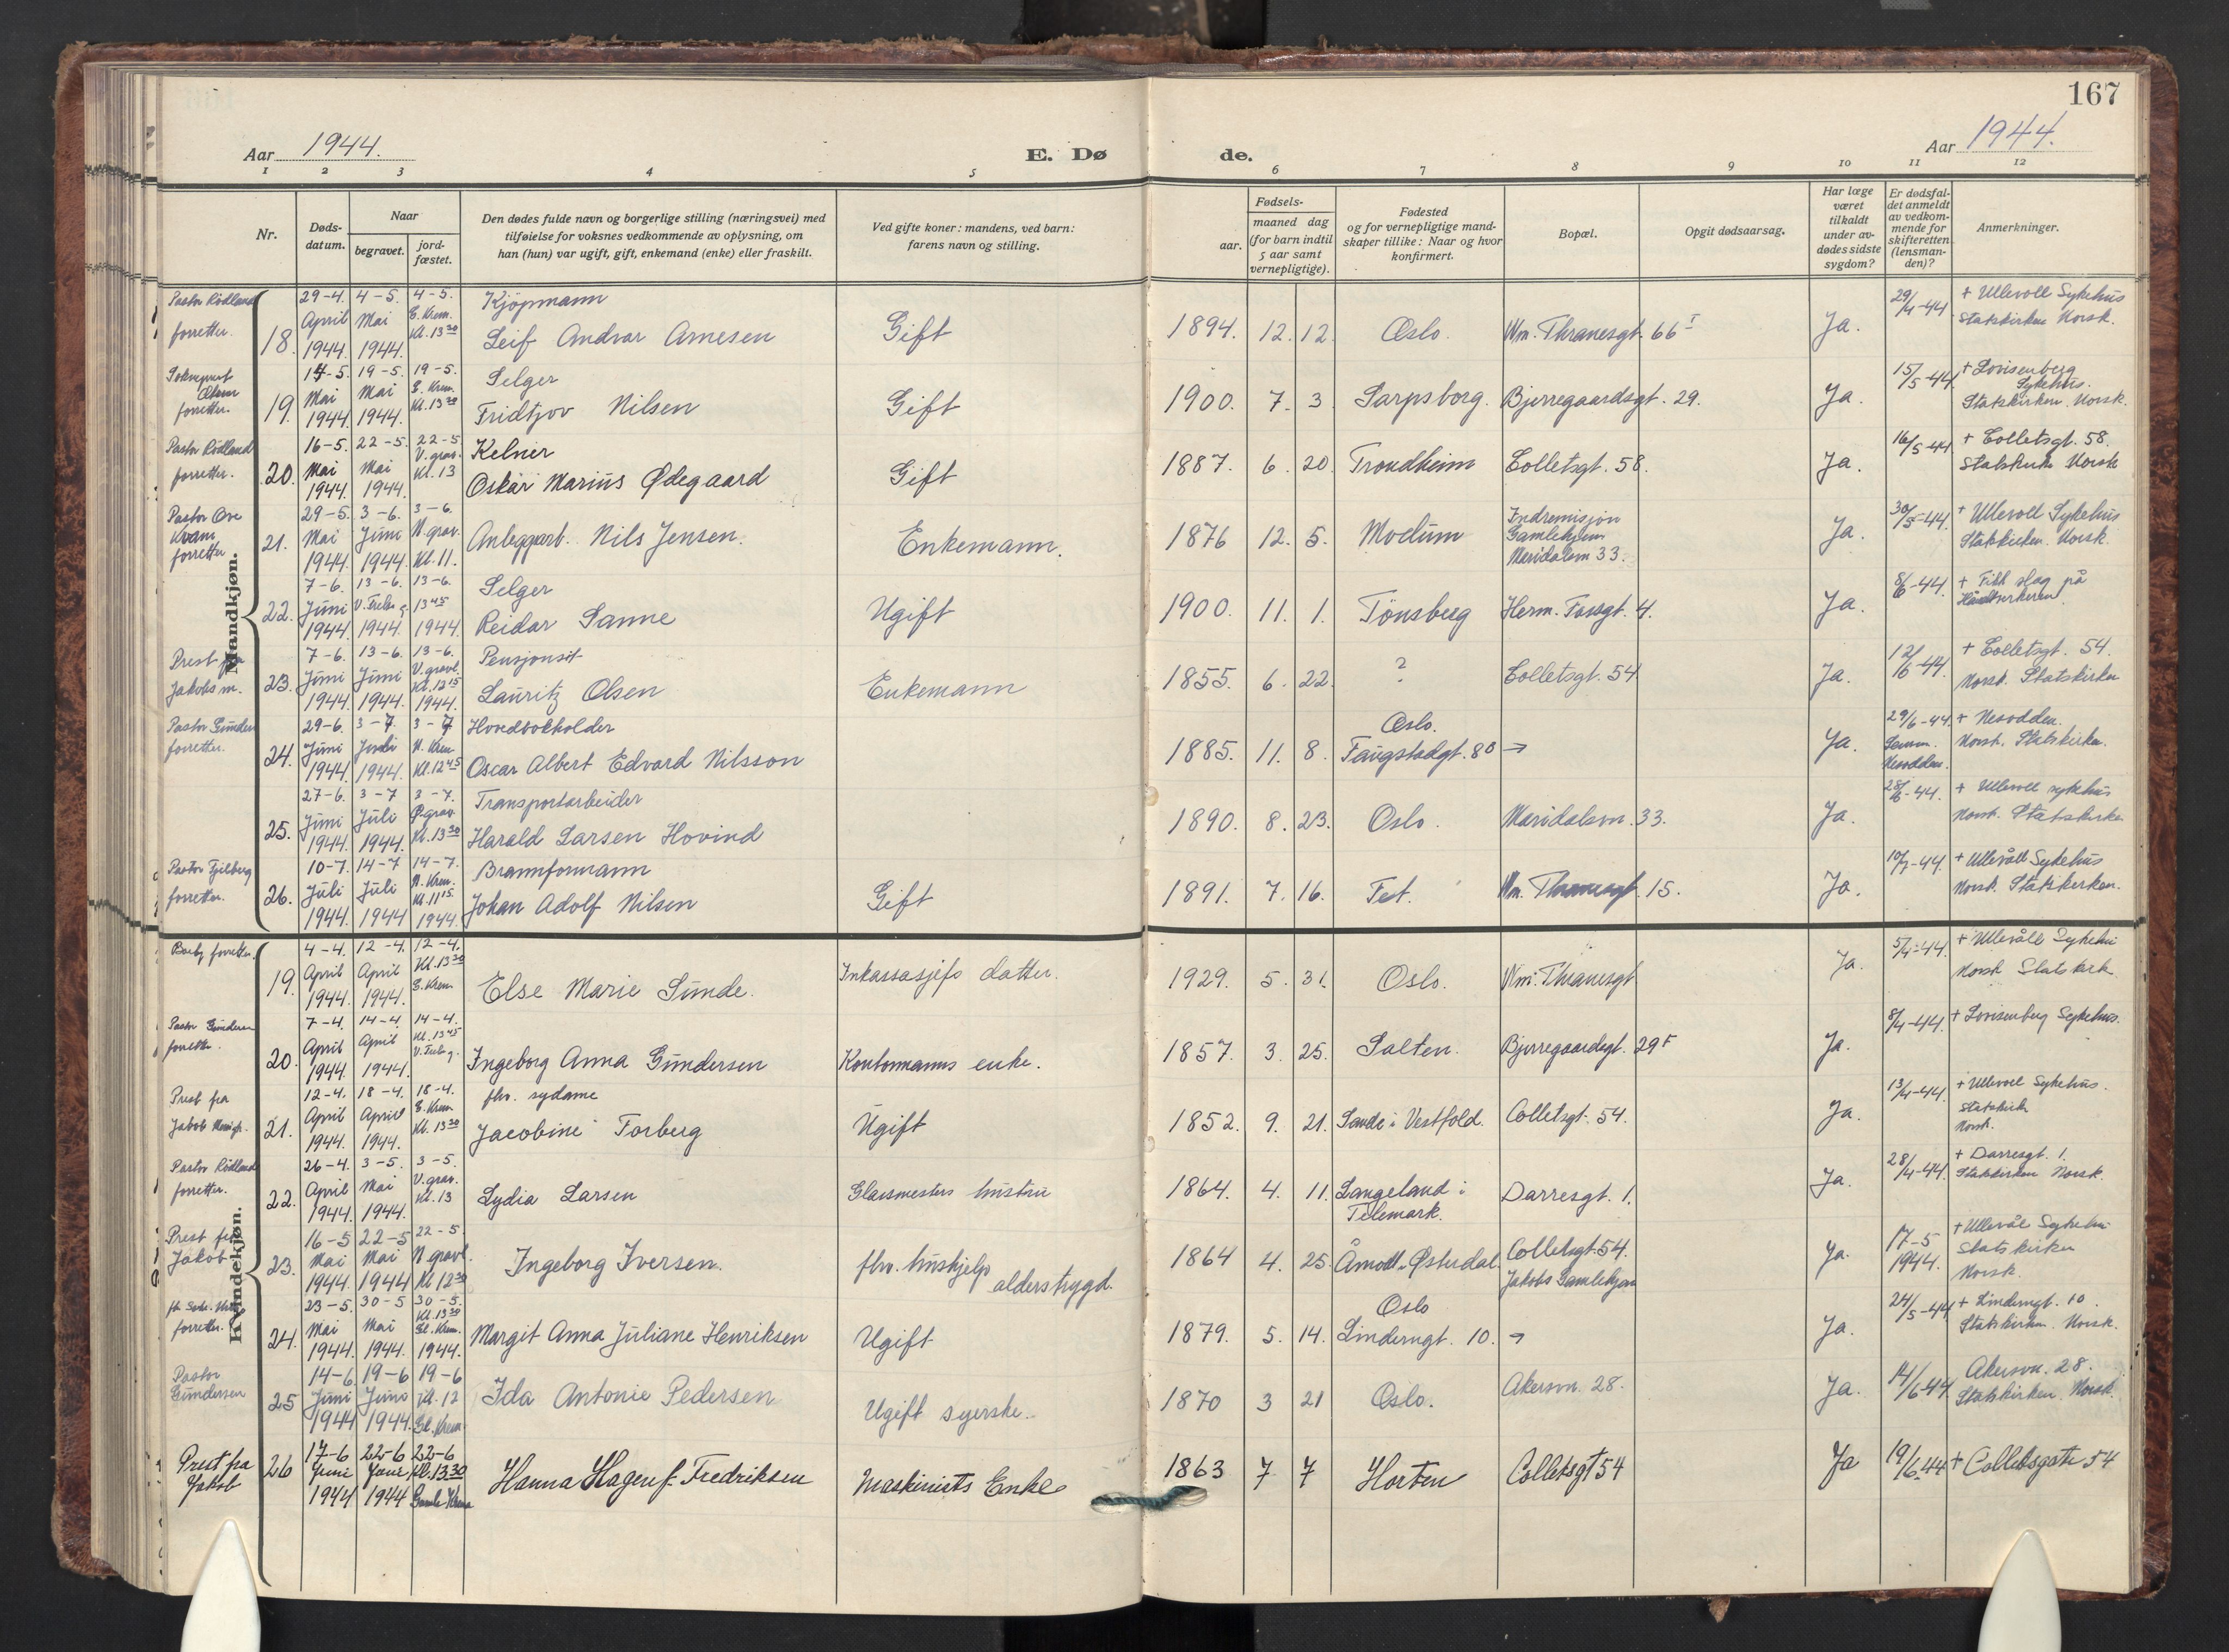 167
Aar 1944.
E. Dø de.
Aar 1944.
1 2 3 4 5 6 7 8 9 10 11 12
Nr.
Døds-
datum.
Naar
begravet.
jord-
fæstet.
Den dødes fulde navn og borgerlige stilling (næringsvei) med
tilføielse for voksnes vedkommende av oplysning, om
han (hun) var ugift, gift, enkemand (enke) eller fraskilt.
Ved gifte koner: mandens, ved barn:
farens navn og stilling.
Fødsels-
aar.
maaned dag
(for barn indtil
5 aar samt
vernepligtige).
Fødested
og for vernepligtige mand-
skaper tillike: Naar og hvor
konfirmert.
Bopæl.
Opgit dødsaarsag.
Har læge
været
tilkaldt
under av-
dødes sidste
sygdom?
Er dødsfal-
det anmeldt
av vedkom-
mende for
skifteretten
(lensman-
den)?
Anmerkninger.
Mandkjøn.
Pastor Rödland
forretter.
18.
29-4.
April
1944.
4-5.
Mai
1944.
4-5.
Kl. 13 30
Kjöpmann
Leif Andvar Arnesen
Gift
1894. 12. 12. Oslo. Wm. Thranesgt. 66 I
Ja.
29/4-44
+ Ullevoll Sykehus
Statskirken Norsk.
forretter.
19.
14-5.
Mai
1944.
19-5.
Mai
1944.
19-5.
Kl. 13 30
Selger
Fridtjov Nilsen
Gift
1900. 7. 3. Sarpsborg. Bjerregaardsgt. 29.
Ja.
15/5-44.
+ Lovisenberg
Sykehus.
Statskirken. Norsk.
Pastor Rödland
forretter.
20.
16-5.
Mai
1944.
22-5.
Mai
1944.
22-5
V. grav.
Kl. 13
Kelner
Oskar Marius Ødegaard
Gift
1887. 6. 20. Trondheim Colletsgt. 58.
Ja.
16/5-44
+ Colletsgt. 58.
Norsk
Pastor Ove
Kvam
forretter
21.
29-5.
Mai
1944.
3-6.
Juni
1944.
3-6.
N. grav.
Kl. 11.
Nils Jensen.
Enkemann.
1876 12. 5. Modum
Indremisjon
Gamlehjem
33.
Ja.
30/5-44.
+ Ullevoll Sykehus
Statskirken. Norsk.
22.
7-6.
Juni
1944.
13-6.
1944.
13-6.
13 45
1944.
Selger
Reidar Sanne
Ugift
1900. 11. 1. Tönsberg Herm. Fossgt. 4.
Ja.
8/6-44.
+ Fikk slag på
Prest fra
Jakobs m.
23.
7-6.
Juni
1944.
13-6.
Juni
1944.
13-6.
V. gravl.
Kl. 12 15
1944.
Pensjonist
Lauritz Olsen
Enkemann
1855. 6. 22. ? Colletsgt. 54
Ja.
12/6-44.
+ Colletsgt. 54.
Norsk. Statskirken
forretter.
24.
29-6.
Juni
1944.
3-7.
1944.
3-7
N. Krem
Kl. 12 45
Hovedbokholder
Oscar Albert Edvard Nilsson
1885. 11. 8.
Oslo.
Faugstadgt. 8B →
Ja.
29/6-44.
Nesodden.
+ Nesodden.
Norsk. Statskirken.
25.
27-6.
Juni
1944.
3-7
Juli
1944.
3-7.
Kl. 13 30
Transportarbeider
Harald Larsen Hovind
1890. 8. 23. Oslo. Maridalsvn. 33.
Ja.
28/6-44.
+ Ullevoll sykehus
Norsk. Statskirken
forretter.
26.
10-7.
Juli
1944.
14-7
Juli
1944
14-7.
N. Krem.
Kl. 11 15.
1944.
Brannformann
Johan Adolf Nilsen
Gift
1891. 7. 16. Fet. Wm. Thranesgt. 15.
Ja.
10/7-44.
+ Ullevåll Sykehus
Norsk. Statskirken.
Kvindekjøn.
forretter.
19.
4-4.
April
1944.
12-4.
April
1944.
12-4.
Kl. 13 30
Else Marie Sunde.
Inkassosjefs datter.
1929. 5. 31. Oslo. Wm. Thranesgt
Ja.
5/4-44.
+ Ullevåll
Norsk Statskirk
forretter.
20.
7-4.
April
1944.
14-4.
April
1944.
14-4.
Kl. 13 45
Ingeborg Anna Gundersen
Kontormanns enke.
1857. 3. 25. Salten. Bjerregaardsgt. 29 F
Ja.
8/4-44.
+ Lovisenberg Sykehus.
Prest fra
21.
12-4.
April
1944.
18-4.
April
1944.
18-4.
Kl. 13 30
fhv. sydame
Jacobine Torberg
Ugift
1852. 9. 21. Sande i Vestfold. Colletsgt. 54.
Ja.
13/4-44.
+ Ullevoll Sykehus.
Statskirk
Norsk.
Pastor Rödland
forretter.
22.
26-4.
April
1944.
3-5.
Mai
1944.
3-5.
V. grav.
Kl. 13
Lydia Larsen
Glassmesters hustru
1864. 4. 11.
Langeland i
Telemark.
Darresgt. 1.
Ja.
28/4-44.
+ Darresgt. 1.
Statskirken Norsk.
Prest fra
Jakob
23.
16-5
Mai
1944.
22-5
Mai
1944
22-5
N. gravl.
Kl 12 30
Ingeborg Iversen.
fhv. hushjelp
alderstrygd.
1864 4. 25. Åmodt, Østerdal.
Colletsgt. 54.
Jakobs Gamlehjem
Ja.
17-5
1944.
+ Ullevål Sykehu
Statskirken
Norsk.
forretter.
24.
23-5.
Mai
1944.
30-5
Mai
1944.
30-5.
Kl. 13 30
Gl. Krem.
1944.
Margit Anna Juliane Henriksen
Ugift
1879. 5. 14.
Oslo
Linderngt. 10. →
Ja.
24/5-44
+ Linderngt. 10.
Statskirken. Norsk.
Pastor
Gundersen
25
14-6.
Juni
1944
19-6
Juni
1944.
19-6
kl. 12
Gl. Krem.
Ida Antonie Pedersen
Ugift syerske.
1870 3 21 Oslo. Akersvn. 28.
Ja.
14/6-44.
Akersvn. 28.
Statskirken. Norsk
Prest fra
Jakob
26
17-6
Juni
1944
22-6
Juni
1944
22-6
kl. 13 30
Gamle Krema
Hanna Hagen f. Fredriksen
Maskinists Enke
1863 7 7 Horten Colletsgt 54
Ja
19/6-44
+ Colletsgate 54